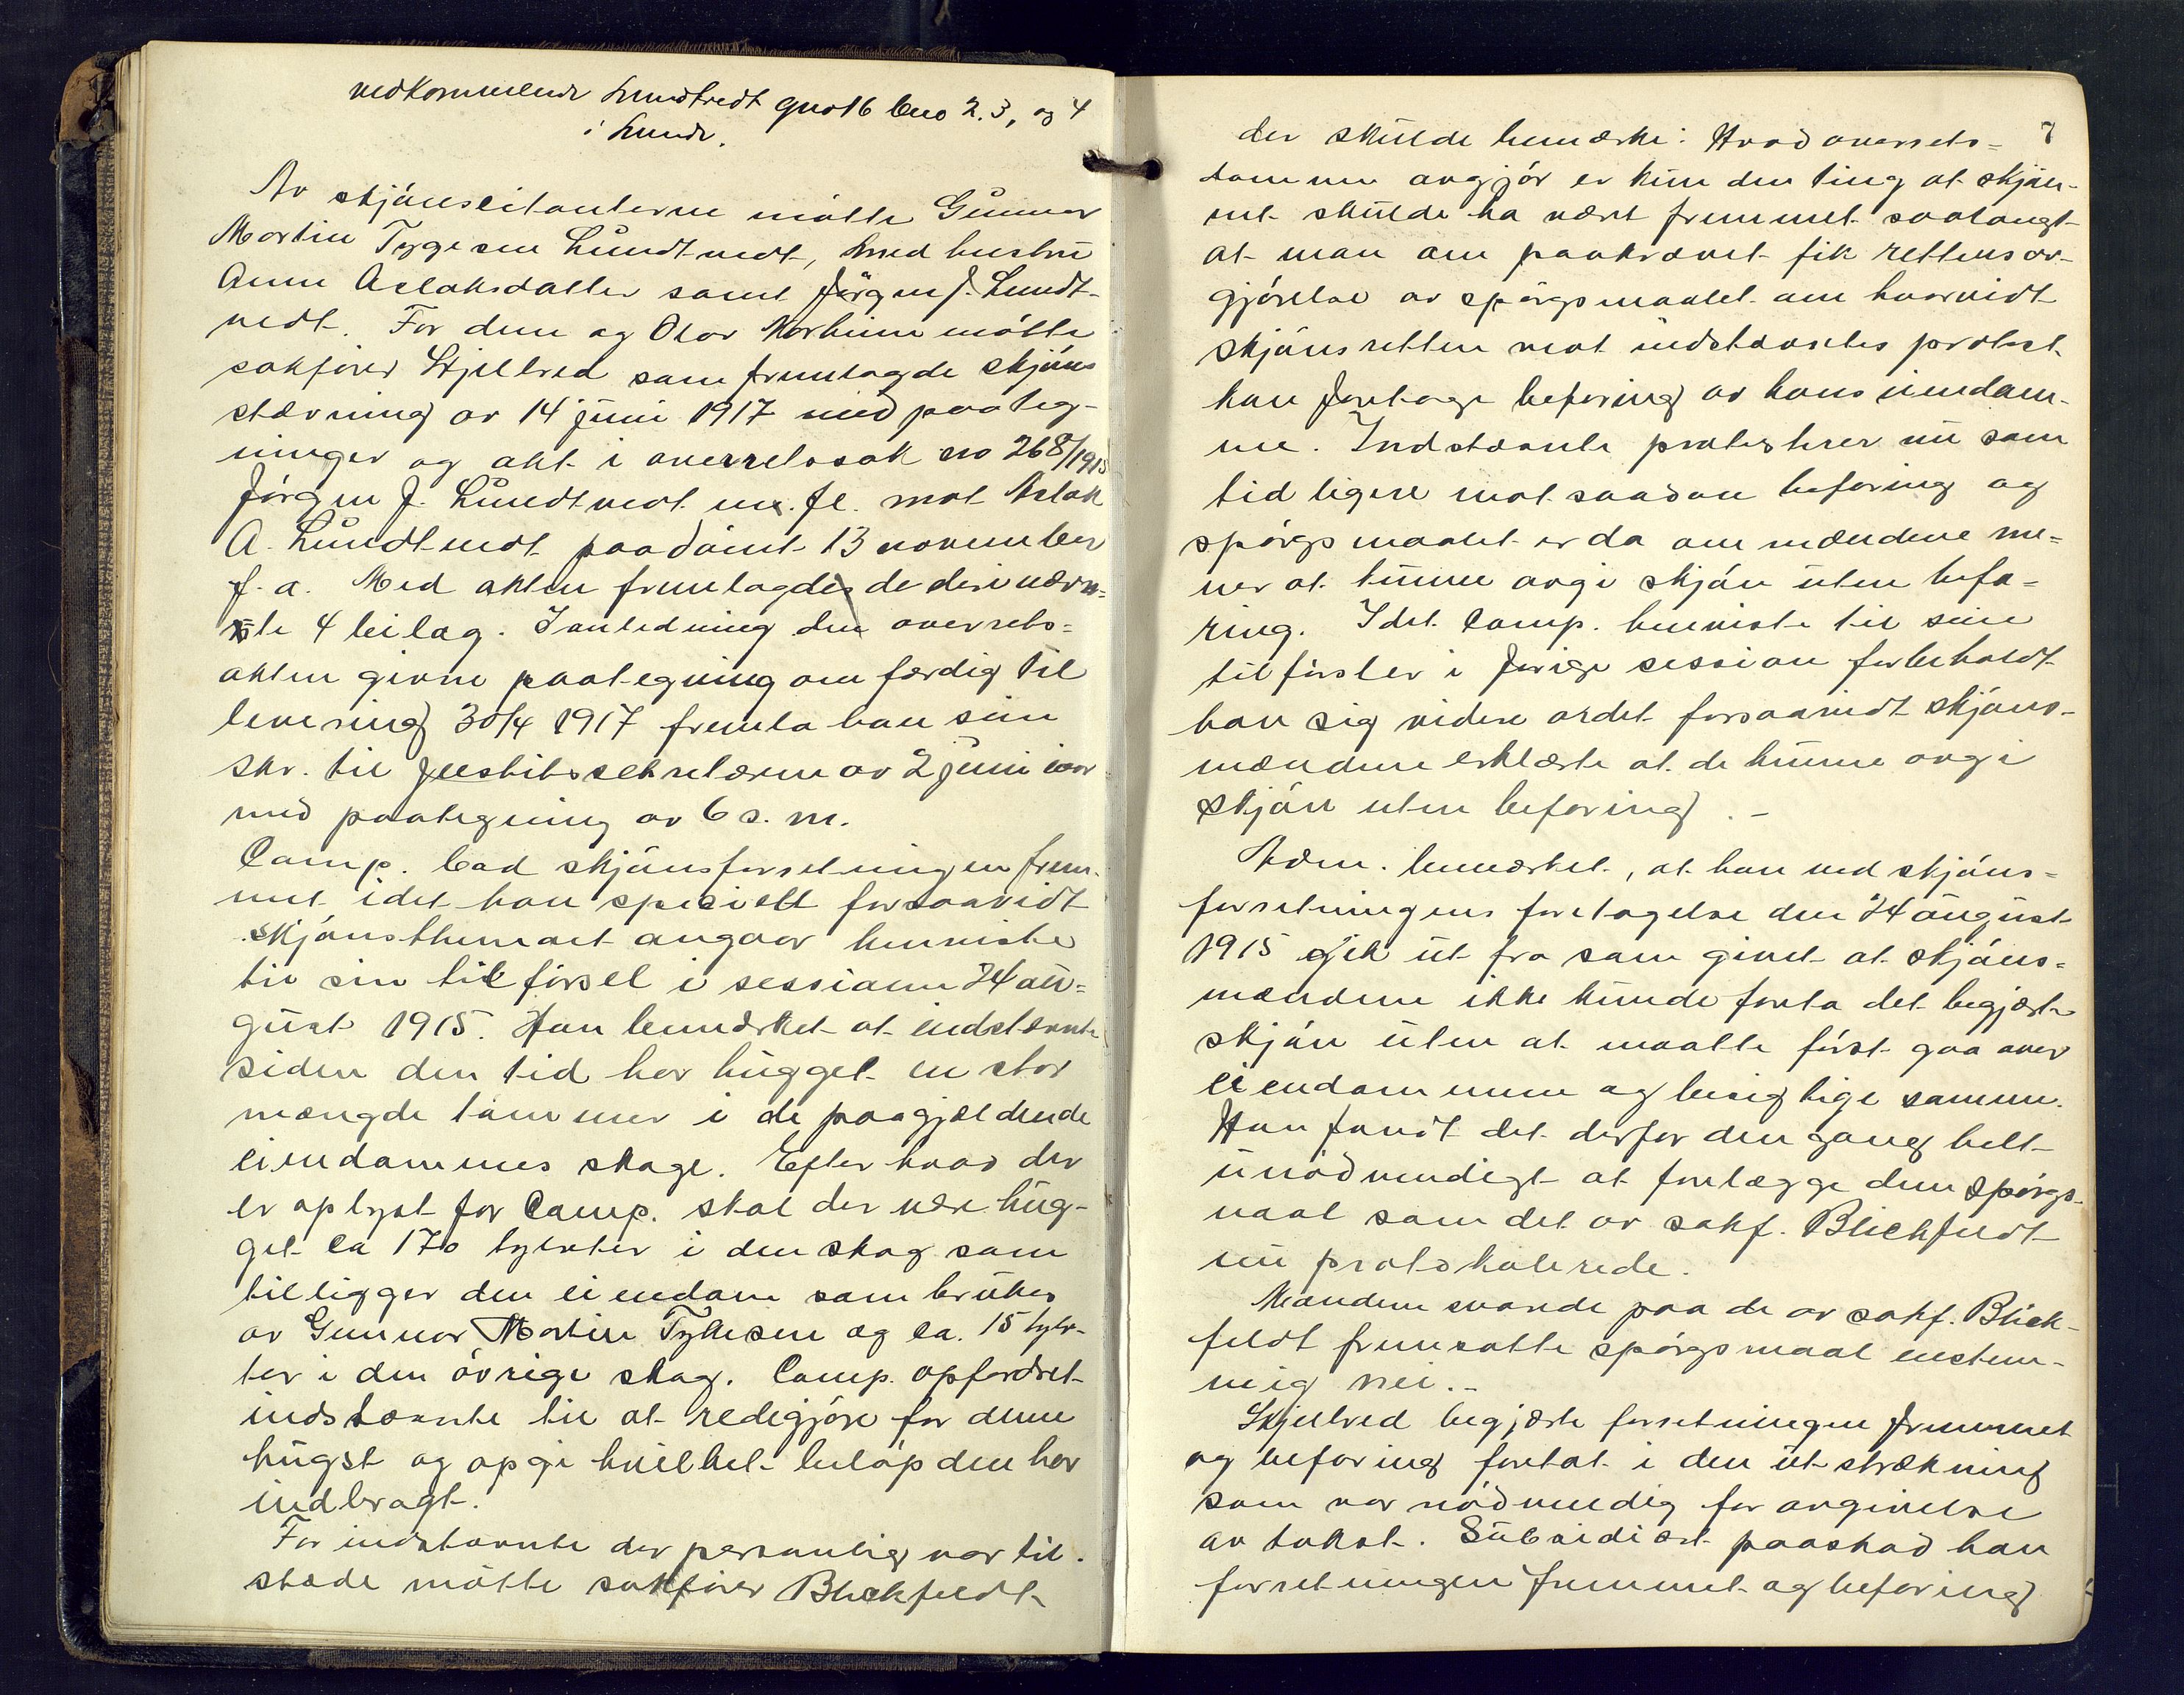 vedkommende Lundtvedt gno 16 bno 2.3, og 4
i Lunde.
Av skjönscitanterne mötte Gunnar
Martin Tygesen Lundtvedt, med hustru
Anne Aslaksdatter samt Jörgen J. Lundt-
vedt. For dem og Olav Norheim mötte
sakförer Skjelbred som fremlagde skjöns
stævning av 14 juni 1917 med paateg-
ninger og akt i overretssak no 268/1915
Jörgen J. Lundtvedt m. fl. mot Aslak
A. Lundtvedt paadömt 13 november
f. a. Med akten fremlagdes de deri nævn-
te 4 bilag. I anledning den overrets-
akten givne paategning om færdig til
levering 30/4 1917 fremla han sin
skr. til justitssekretæren av 2 juni iaar
med paategning av 6 s. m.
Comp. bad skjönsforretningen frem-
met idet han specielt forsaavidt
skjönsthemaet angaar henviste
til sin tilförsel i sessionen 24 au-
gust 1915. Han bemærket at indstævnte
siden den tid har hugget en stor
mængde tömmer i de paagjældende
eiendommes skoge. Efter hvad der
er oplyst for Comp. skal der være hug-
get ca 170 tylvter i den skog som
tilligger den eiendom som brukes
av Gunnar Martin Tykesen og ca. 15 tylv-
ter i den övrige skog. Comp. opfordret
indstævnte til at redegjöre for denne
hugst og opgi hvilket belöp den har
indbragt.
For indstævnte der personlig var til-
stede mötte sakförer Blichfeldt
7
der skulde bemærke: Hvad overrets-
dommen avgjör er kun den ting at skjön-
net skulde ha været fremmet saalangt
at man om paakrævet fik rettens av-
gjörelse av spörgsmaalet om hvorvidt
skjönsretten mot indstævntes protest
kan foretage befaring av hans eiendom-
me. Indstævnte protesterer nu som
tidligere mot saadan befaring og
spörgsmaalet er da om mændene me-
ner at kunne avgi skjön uten befa-
ring. Idet Comp. henviste til sine
tilförsler i forrige session forbeholdt
han sig videre ordet forsaavidt skjöns-
mændene erklærte at de kunne avgi
skjön uten befaring. -
Adm. bemærket, at han ved skjöns-
forretningens foretagelse den 24 august
1915 gik ut fra som givet at skjöns-
mændene ikke kunde foreta det begjærte
skjön uten at maatte först gaa over
eiendommene og besigtige samme.
Han fandt det derfor den gang helt
unödvendigt at forelægge dem spörgs-
maal som det av sakf. Blichfeldt
nu protokolerede.
Mændene svarede paa de av sakf. Blich-
feldt fremsatte spörgsmaal enstem-
mig nei. -
Skjelbred begjærte forretningen fremmet
og befaring foretat i den utstrækning
som var nödvendig for avgivelse
av takst. Subsidiært paastod han
forretningen fremmet og befaring